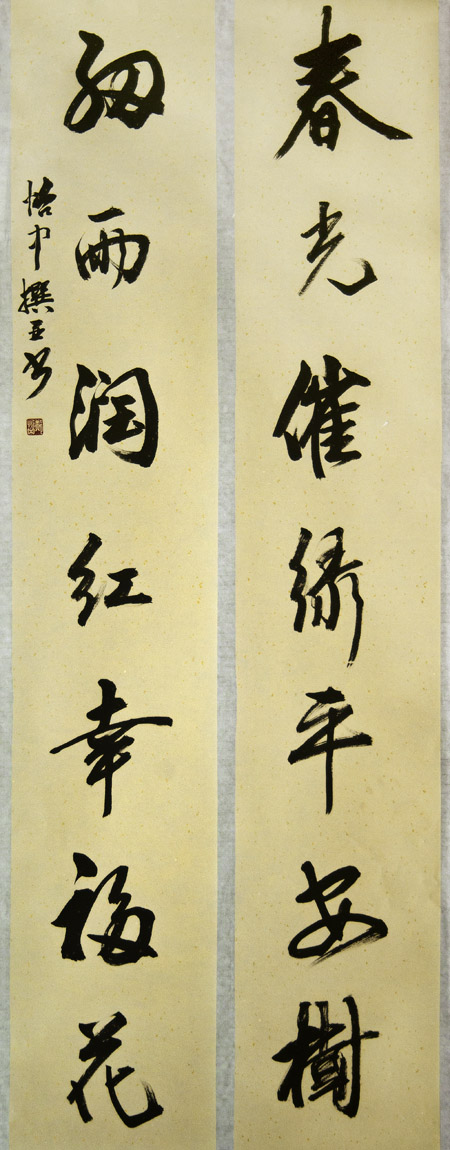 春光催绿平安樹
细雨润红幸福花
怡中撰 亚书